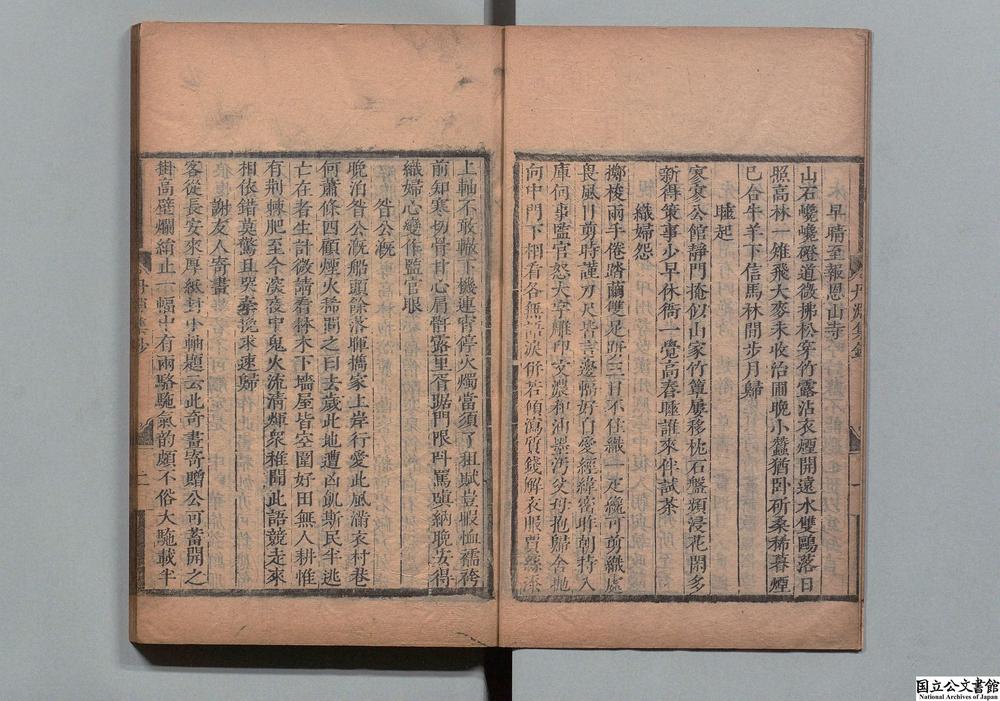 早晴至報恩山寺
山石巉巉磴道微拂松穿竹露沾衣煙開遠水雙鷗落日
照高林一雉飛大麥未收治圃晚小蠶猶卧斫桑稀暮煙
已合牛羊下信馬林間步月歸
睡起
寂寂公館靜門掩似山家竹簟屢移枕石盤頻浸花閑多
新得策事少早休衙一覺高舂睡誰來伴試茶
織婦怨
擲梭兩手倦踏繭雙足趼三日不住織一疋纔可剪織處
畏風日剪時謹刀尺皆言邊幅好自愛經緯密昨朝持入
庫何事監官怒大字雕印文濃和油墨汚父母抱歸舍抛
向中門下相看各無語淚併若傾瀉質錢解衣服買絲添
上軸不敢輟下機連宵停火燭當須了租賦豈暇恤襦袴
前知寒切骨甘心肩骭露里胥踞門限呌罵嗔納晚安得
織婦心變作監官眼
晚泊船頭餘落暉攜家上岸行愛此風滿衣村巷
何蕭條四顧煙火稀問之曰去歲此地遭凶飢斯民半逃
亡在者生計微請看林木下牆屋皆空圍好田無人耕惟
有荆棘肥至今深夜中鬼火流清輝衆稚聞此語競走來
相依錯莫驚且哭牽挽求速歸
謝友人寄畫
客從長安來厚紙封小軸題云此奇畫寄贈公可蓄開之
掛高壁爛綃止一幅中有兩駱駞氣韵頗不俗大駞載半
一
二
国立公文書館
National Archives of Japan